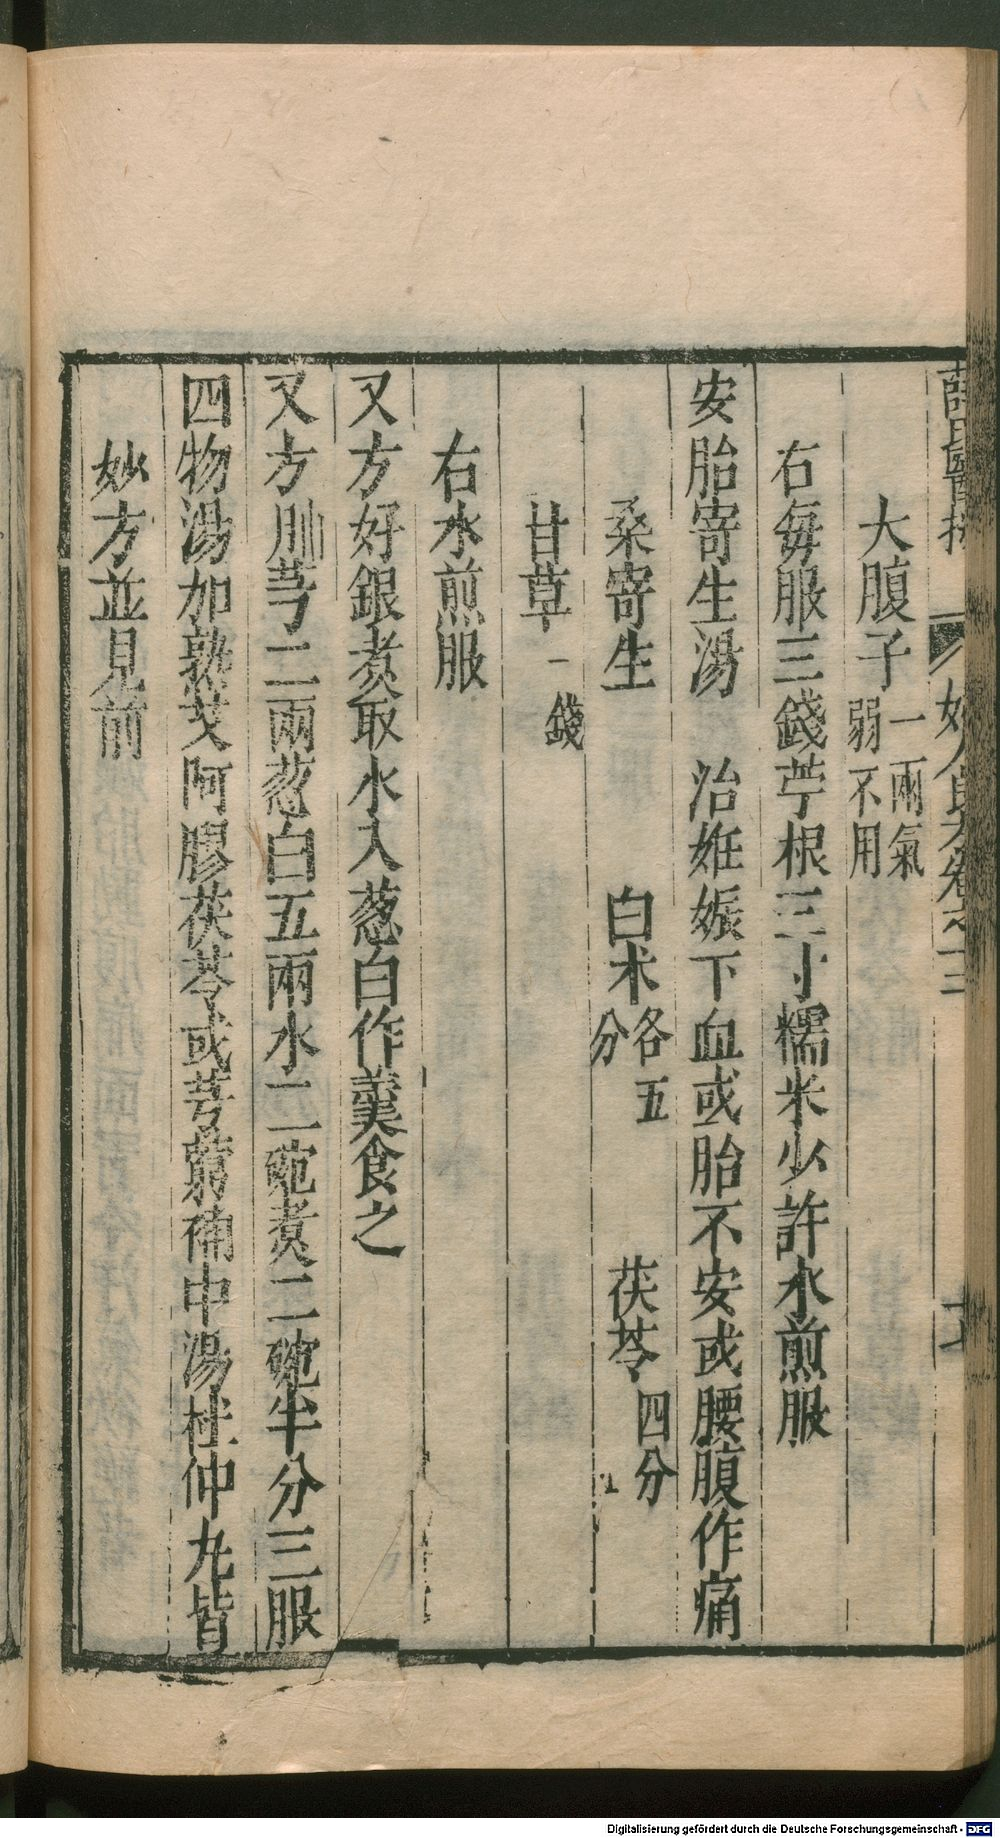 薛氏醫按　婦人良方卷之十二
大腹子一兩氣弱不用
右每服三錢苧根三寸糯米少許水煎服
安胎寄生湯　治姙娠下血或胎不安或腰腹作痛
桑寄生　白术各五分　茯苓四分
甘草一錢
右水煎服
又方好銀煮取水入葱白作羹食之
又方川芎二兩葱白五兩水二碗煮二碗半分三服
四物湯加熟艾阿膠茯苓或芎藭補中湯杜仲丸皆
妙方並見前
Digitalisierung gefördert durch die Deutsche Forschungsgemeinschaft - DFG